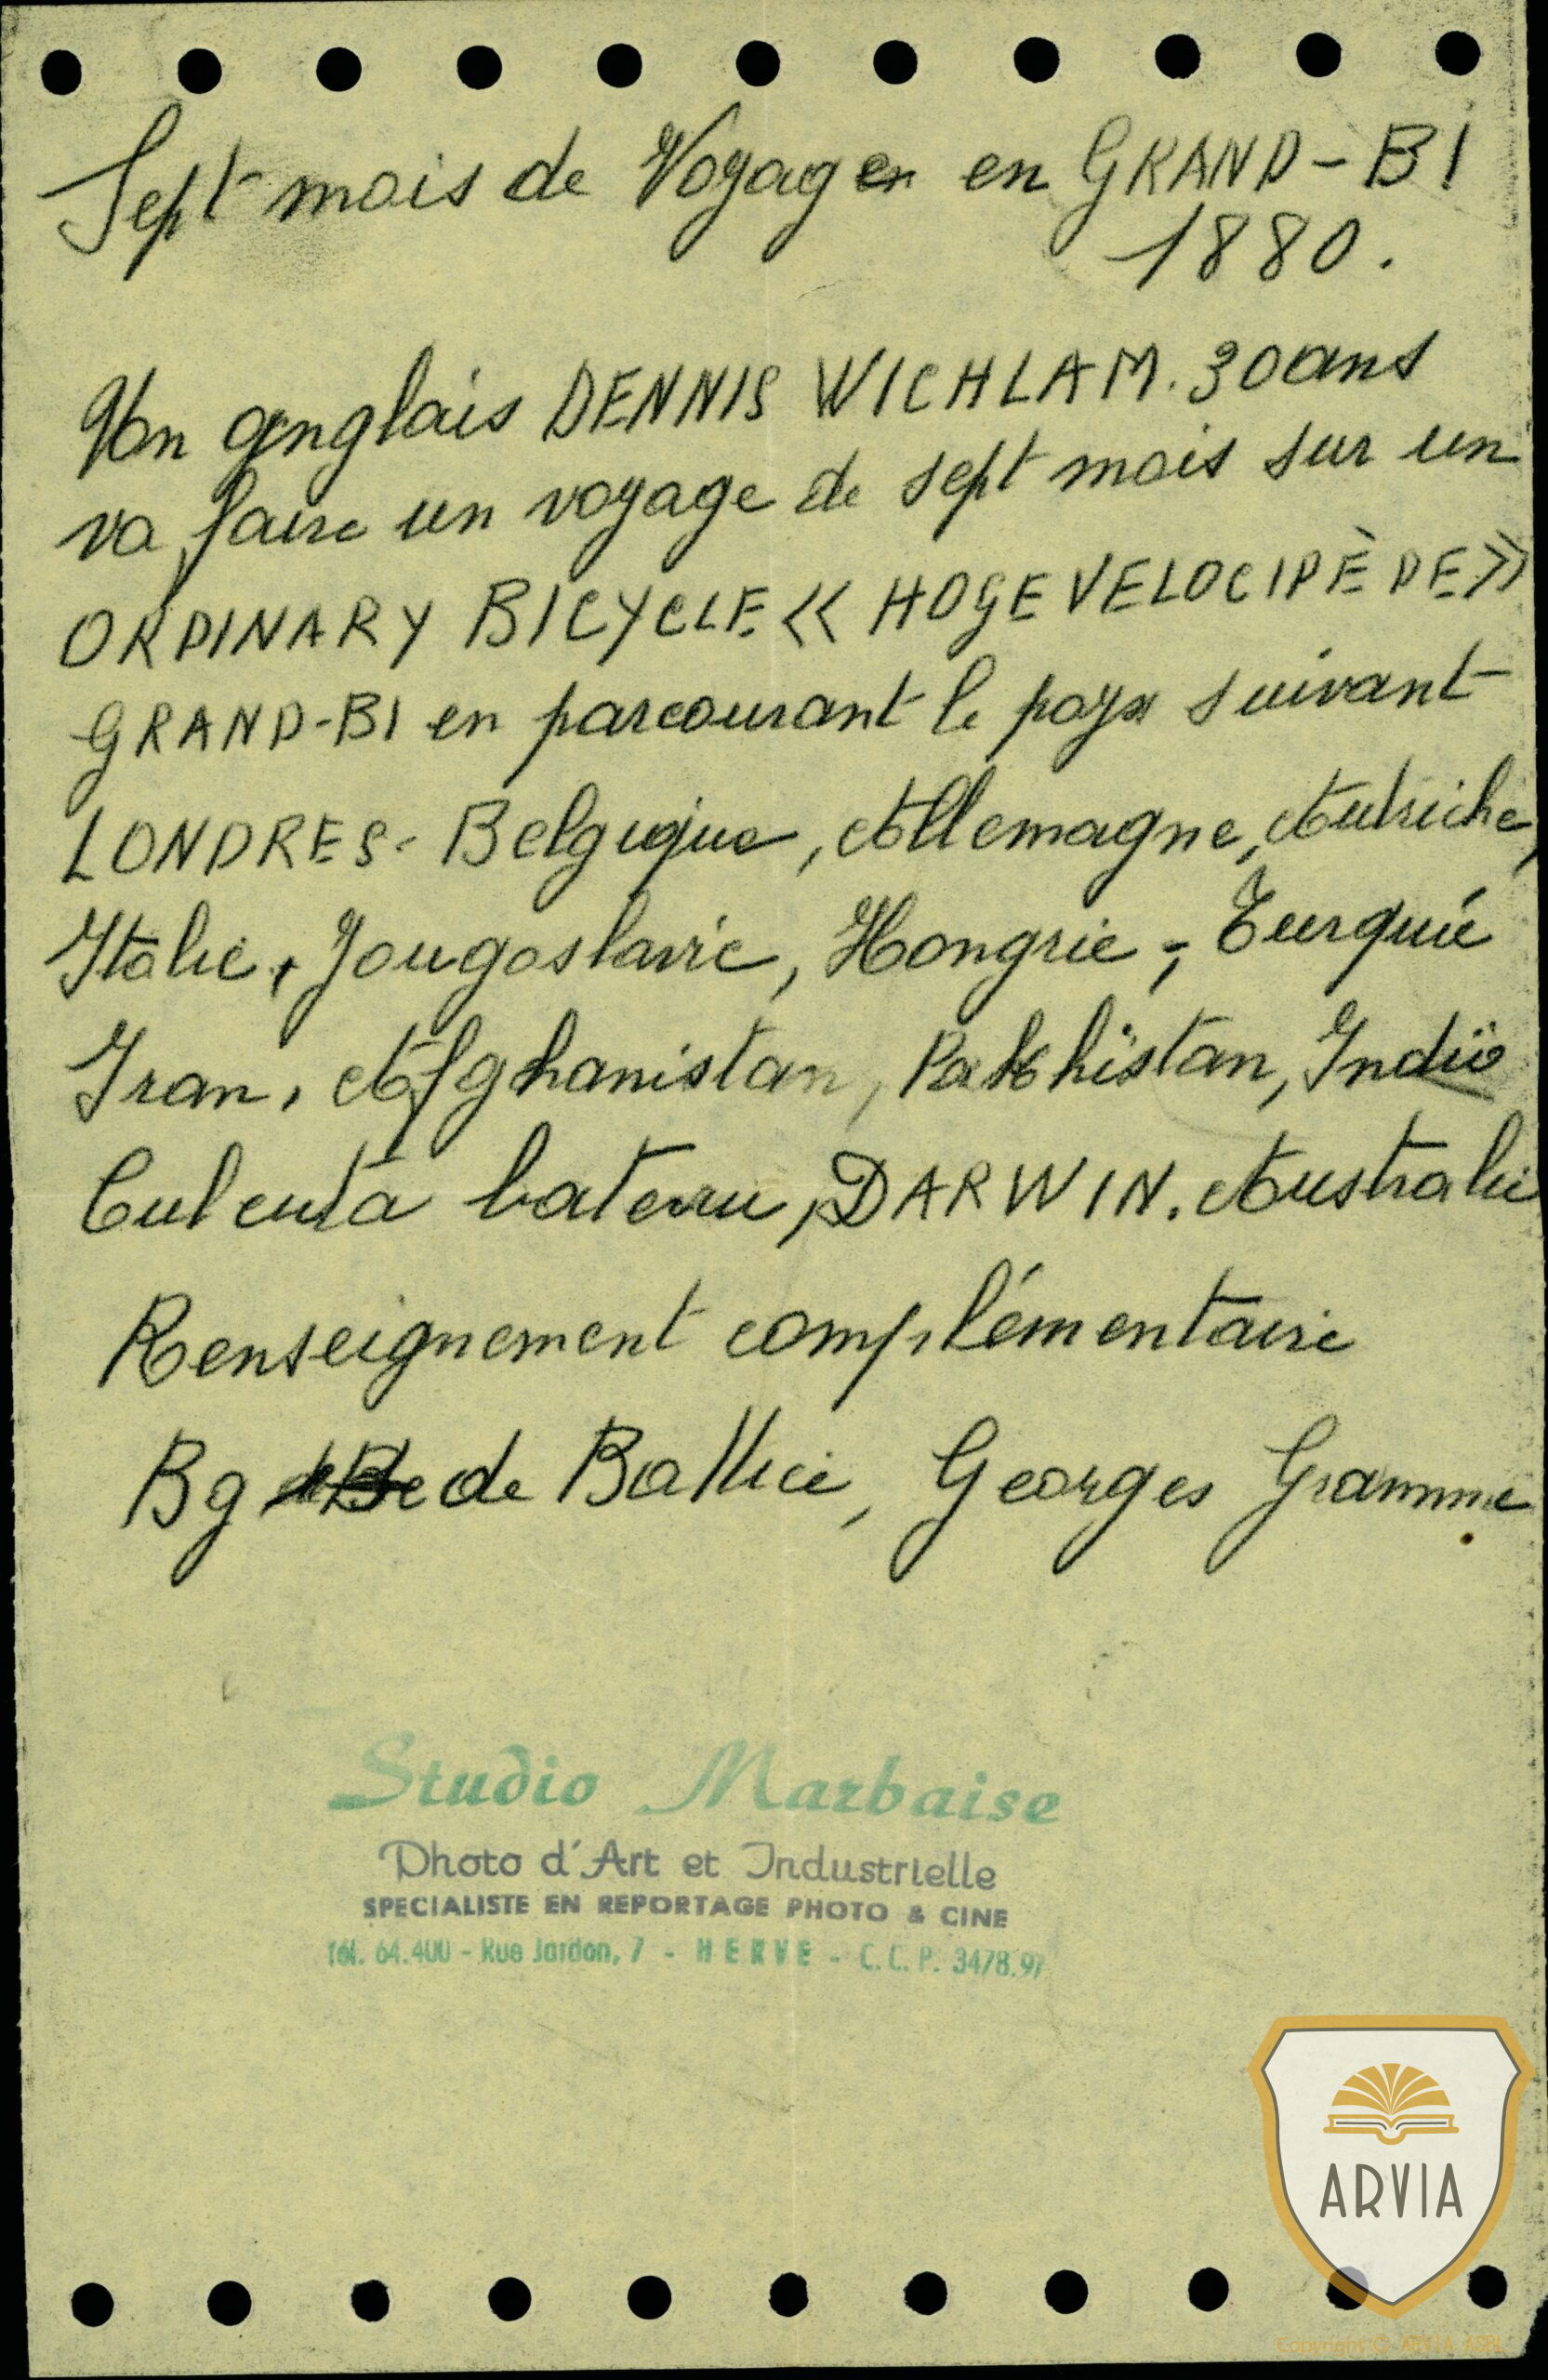 Sept mois de Voyage en GRAND-BI
1880.
Un anglais DENNIS WICHLAM. 30 ans
va faire un voyage de sept mois sur un
ORDINARY BICYCLE << HOGE VELOCIPÈDE >>
GRAND-BI en parcourant le pays suivant
LONDRES - Belgique, Allemagne, Autriche,
Italie, Yougoslavie, Hongrie, Turquie
Iran, Afghanistan, Pakhistan, Indie
Culcuta bateau, DARWIN. Australie
Renseignement complémentaire
Bg de Battice, Georges Gramme
Studio Marbaise
Photo d'Art et Industrielle
SPECIALISTE EN REPORTAGE PHOTO & CINE
Tél. 64.400 - Rue Jardon, 7 - HERVE - C.C.P. 3478.97
ARVIA
Copyright © ARVIA ASBL